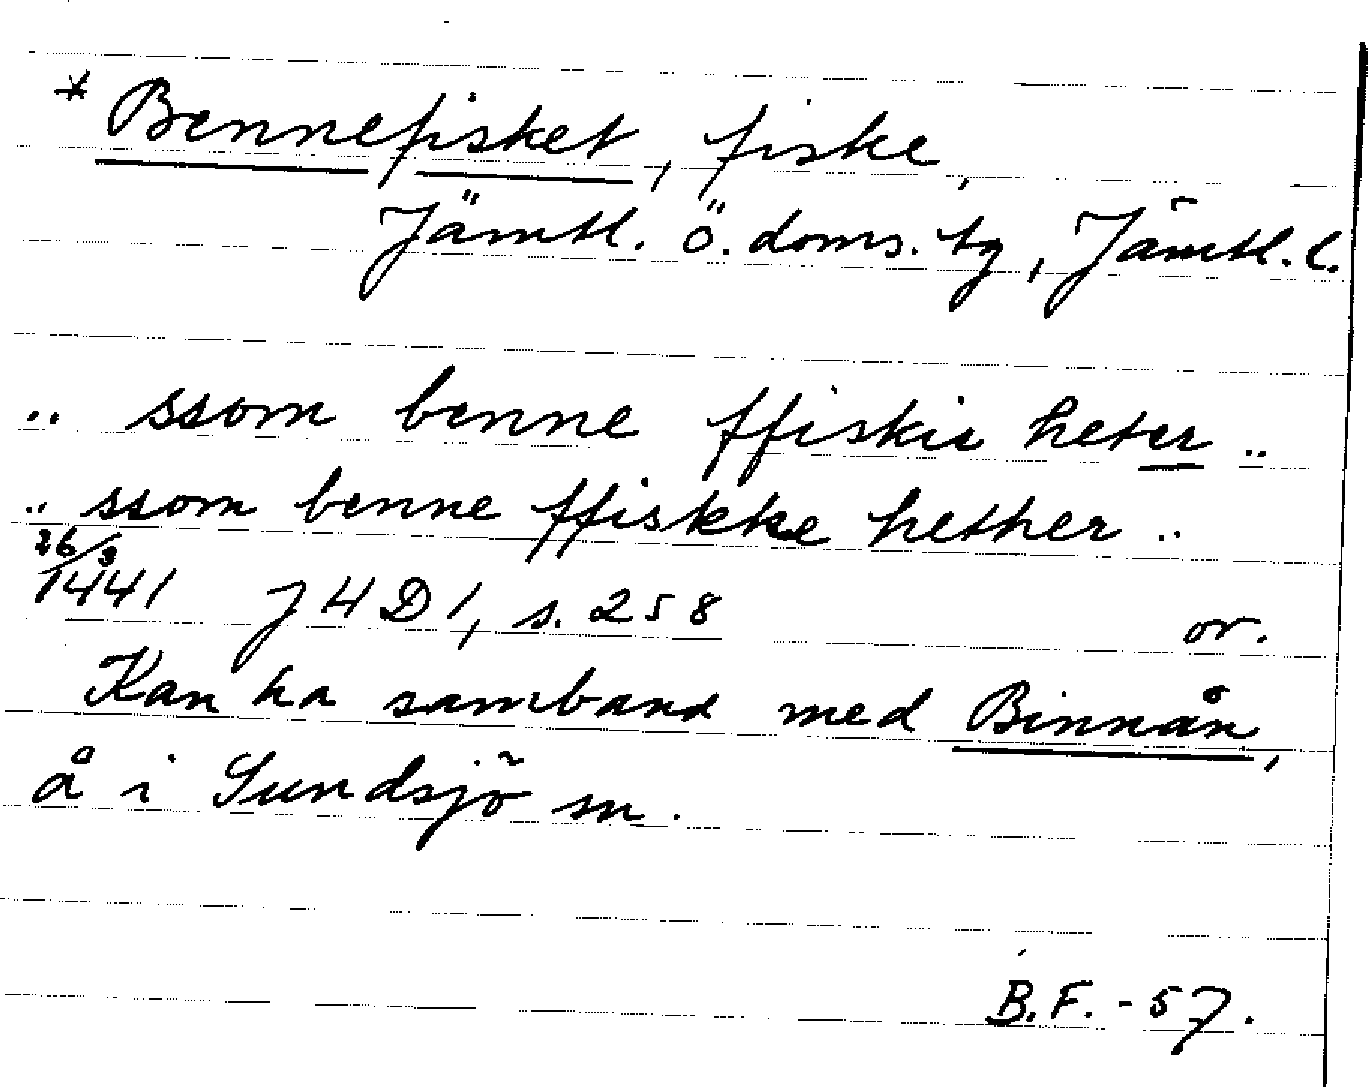 * Bennefisket, fiske,
Jämtl. ö. doms. tg, Jämtl. l.
.. ssom benne ffiskie heter ..
.. ssom benne ffiskke hether ..
26/3 1441 J4D1, s. 258 or.
Kan ha samband med Binnån,
å i Sundsjö sn.
B.F. - 57.